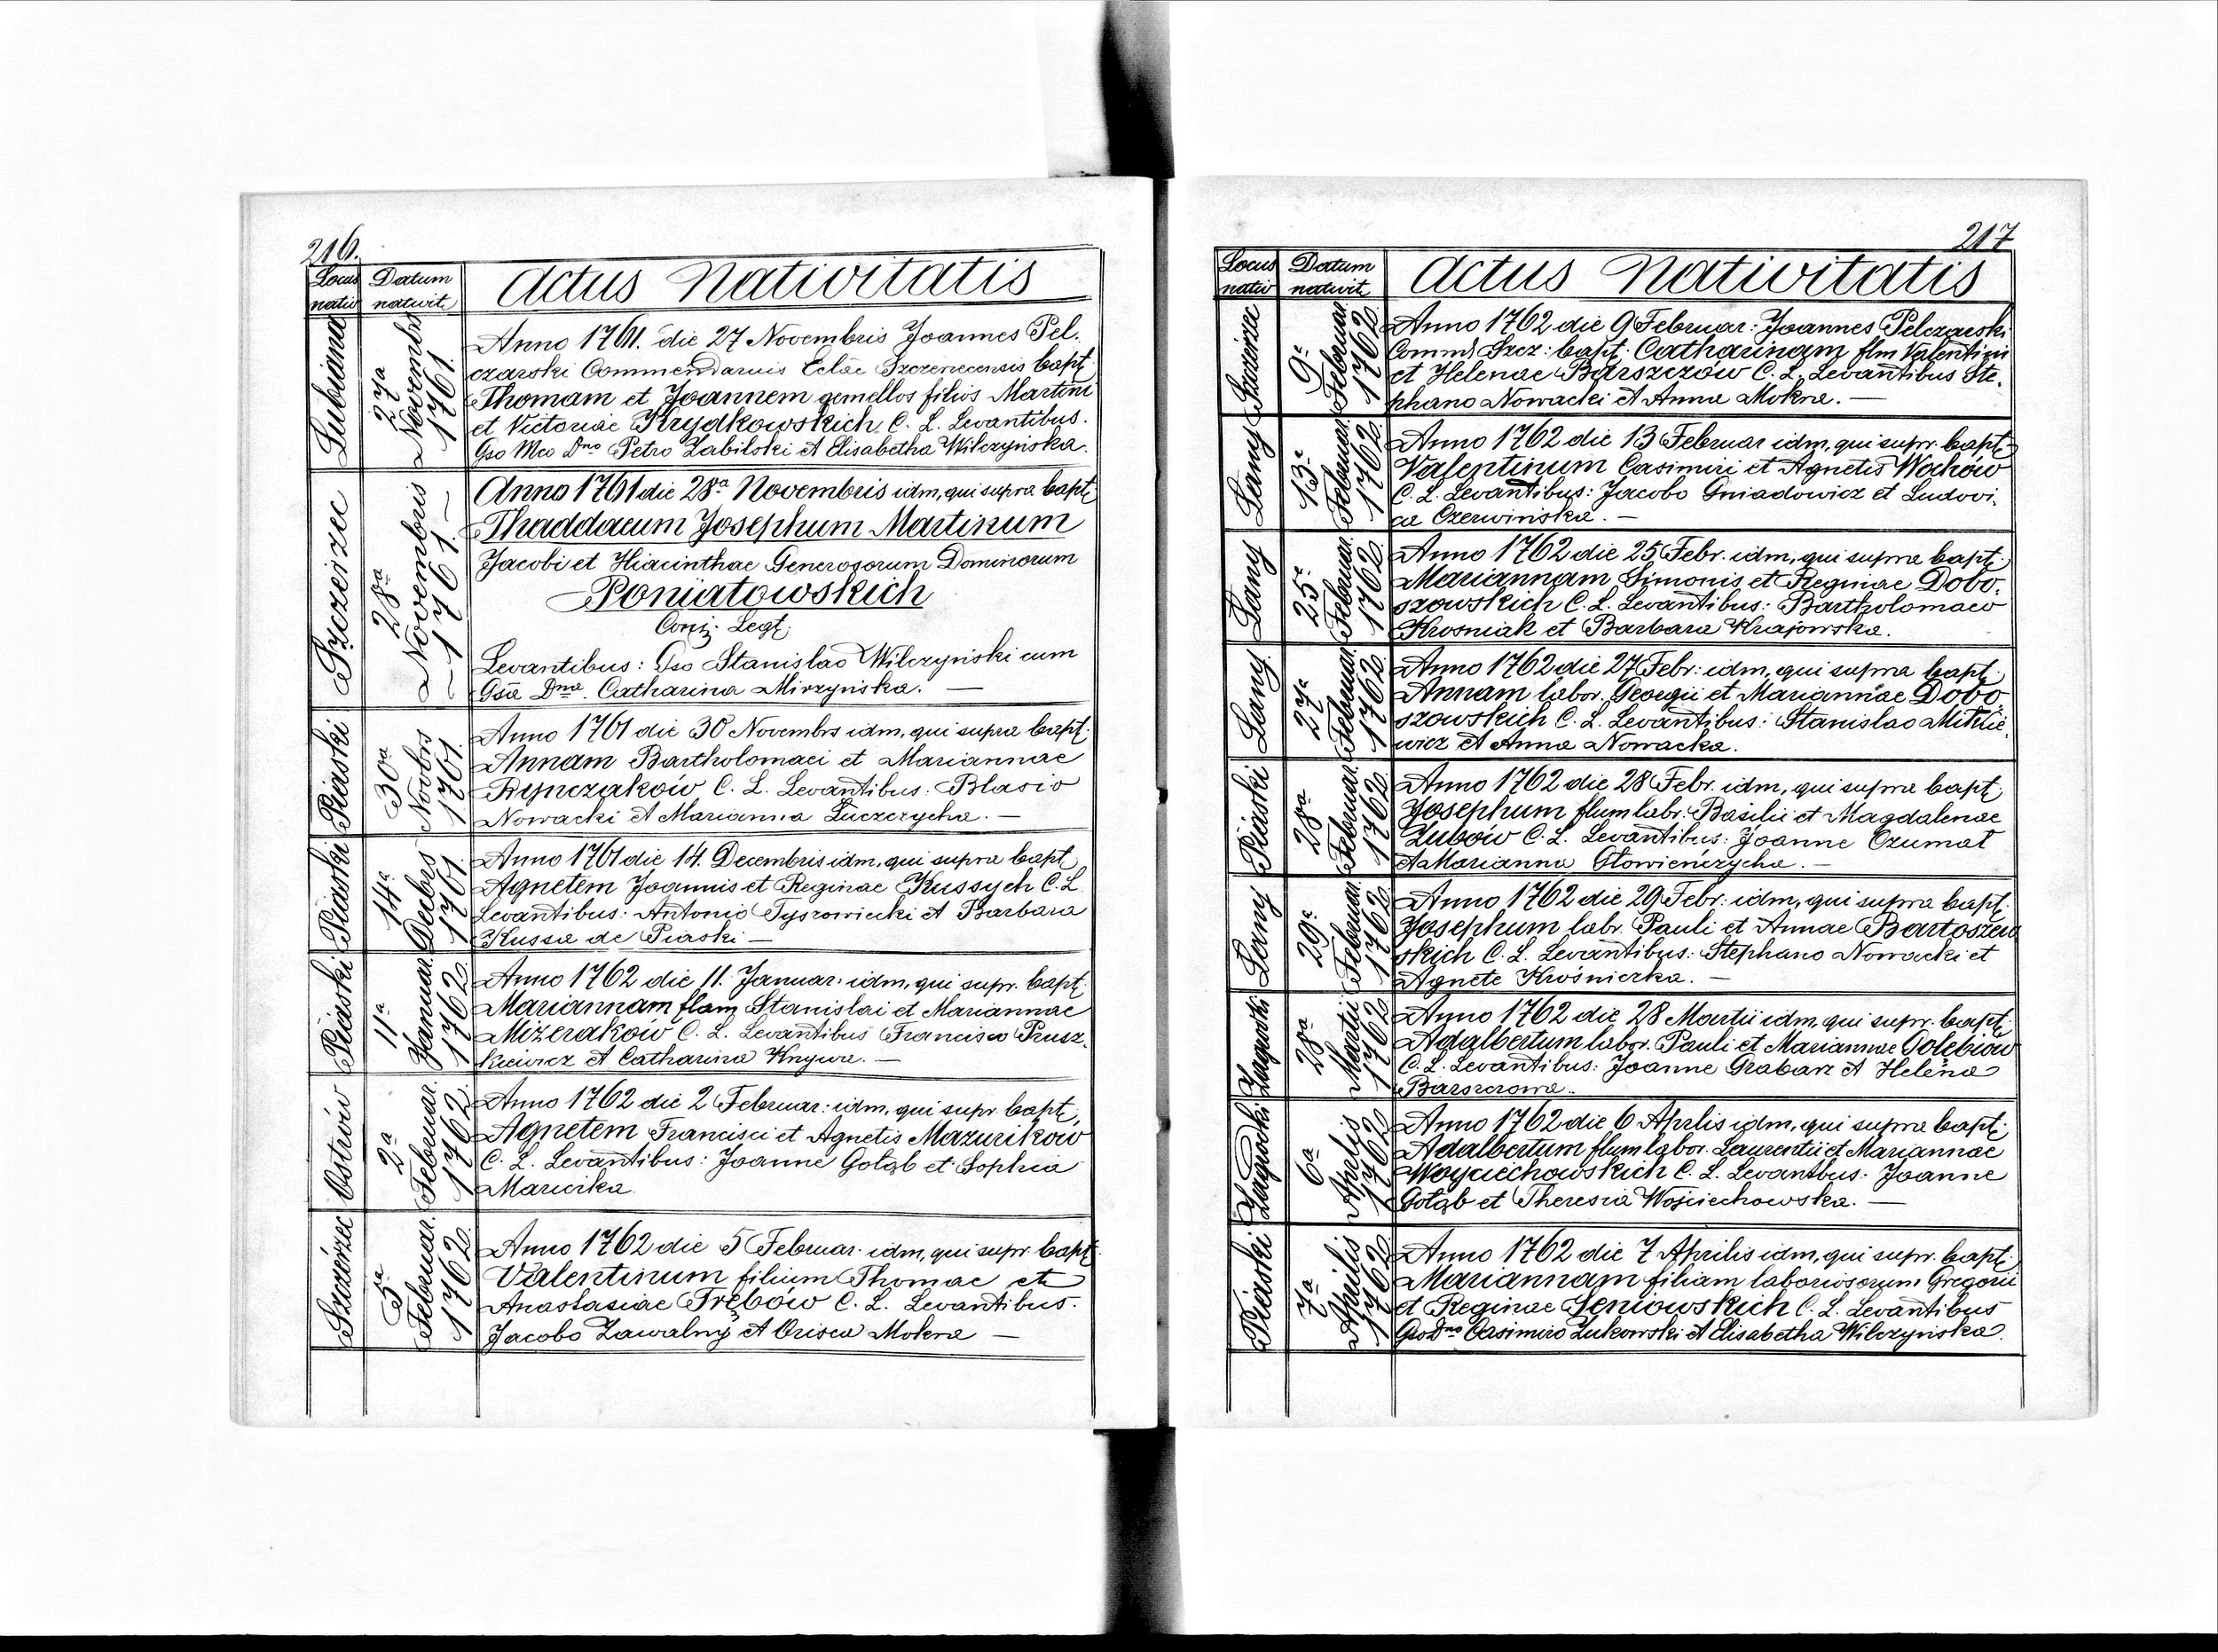 216.
Locus nativ
Datum nativit.
Actus Nativitatis
Lubiana
27a Novembrs 1761.
Anno 1761. die 27 Novembris Joannes Pel.
czarski Commendarius Eclae Szczerecensis bapt.
Thomam et Joannem gemellos filios Martini
et Victoriae Krydkowskich C. L. Levantibus.
Gso Mco Dno Petro Zabilski et Elisabetha Wilczyńska.
Szczeirzec
28va Novembris 1761.
Anno 1761 die 28a Novembris idm, qui supra bapt:
Thaddaeum Josephum Martinum
Jacobi et Hiacinthae Generosorum Dominorum
Poniatowskich
Coni: Legt:
Levantibus: Gso Stanislao Wilczyński cum
Gsa Dna Catharina Mirzyńska. —
Piaski
30a Novbrs 1761.
Anno 1761 die 30 Novembrs idm, qui supra bapt:
Annam Bartholomaei et Mariannae
Rynczaków C. L. Levantibus: Blasio
Nowacki et Marianna Łuczczycha. —
Piaski
14a Decbrs 1761.
Anno 1761 die 14. Decembris idm, qui supra bapt
Agnetem Joannis et Reginae Kussych C. L.
Levantibus: Antonio Tyszowiecki et Barbara
Kussa de Piaski —
Piaski
11a Januar. 1762
Anno 1762 die 11. Januar: idm, qui supr. bapt:
Mariannam flam Stanislai et Mariannae
Mizeraków C. L. Levantibus Francisco Prusz.
kiewicz et Catharina Knywa. —
Ostrów
2a Februar. 1762
Anno 1762 die 2 Februar: idm, qui supr. bapt,
Agnetem Francisci et Agnetis Mazurików
C. L. Levantibus: Joanne Gołąb et Sophia
Maricika
Szczérzéc
5ta Februar. 1762.
Anno 1762 die 5 Februar. idm, qui supr. bapt:
Valentinum filium Thomae et
Anastasiae Trębów C. L. Levantibus.
Jacobo Zawalny et Orisca Mokra —
217
Locus nativ
Datum nativit
Actus Nativitatis
Szczérzéc
9a Februar. 1762
Anno 1762 die 9 Februar: Joannes Pelczarski
Commd Szcz: bapt: Catharinam flm Valentini
et Helenae Barszczów C. L. Levantibus Ste.
phano Nowacki et Anna Mokra. —
Łany
13a Februar. 1762
Anno 1762 die 13 Februar idm, qui supr. bapt:
Valentinum Casimiri et Agnetis Wochów
C. L. Levantibus: Jacobo Gniadowicz et Ludovi.
ca Czerwińska. —
Łany
25a Februar. 1762.
Anno 1762 die 25 Febr. idm, qui supra bapt:
Mariannam Simonis et Reginae Dobo.
szowskich C. L. Levantibus: Bartholomaeo
Krosniak et Barbara Krajowska.
Łany
27a Februar. 1762.
Anno 1762 die 27 Febr: idm, qui supra bapt:
Annam labor. Georgii et Mariannae Dobo.
szowskich C. L. Levantibus: Stanislao Mitkie.
wicz et Anna Nowacka.
Piaski
28va Februar. 1762
Anno 1762 die 28 Febr. idm, qui supra bapt:
Josephum flum labr. Basilii et Magdalenae
Zubów C. L. Levantibus: Joanne Ozumat
et Marianna Głowieńczycha. —
Łany
29a Februar. 1762
Anno 1762 die 29 Febr: idm, qui supra bapt:
Josephum labr. Pauli et Annae Bartoszew
skich C. L. Levantibus: Stephano Nowacki et
Agnete Krośniczka. —
Zagrodki
28va Martii 1762
Anno 1762 die 28 Martii idm, qui supr. bapt:
Adalbertum labor. Pauli et Mariannae Gołębiów
C. L. Levantibus: Joanne Grabarz et Helena
Barszczowa.
Zagrodki
6a Aprilis 1762
Anno 1762 die 6 Aprilis idm, qui supra bapt:
Adalbertum flum labor. Laurentii et Mariannae
Woyciechowskich C. L. Levantbus: Joanne
Gołąb et Theresia Wojciechowska. —
Piaski
7a Aprilis 1762
Anno 1762 die 7 Aprilis idm, qui supr. bapt:
Mariannam filiam laboriosorum Gregorii
et Reginae Jeniowskich C. L. Levantibus
Gso Dno Casimiro Żukowski et Elisabetha Wilczyńska.